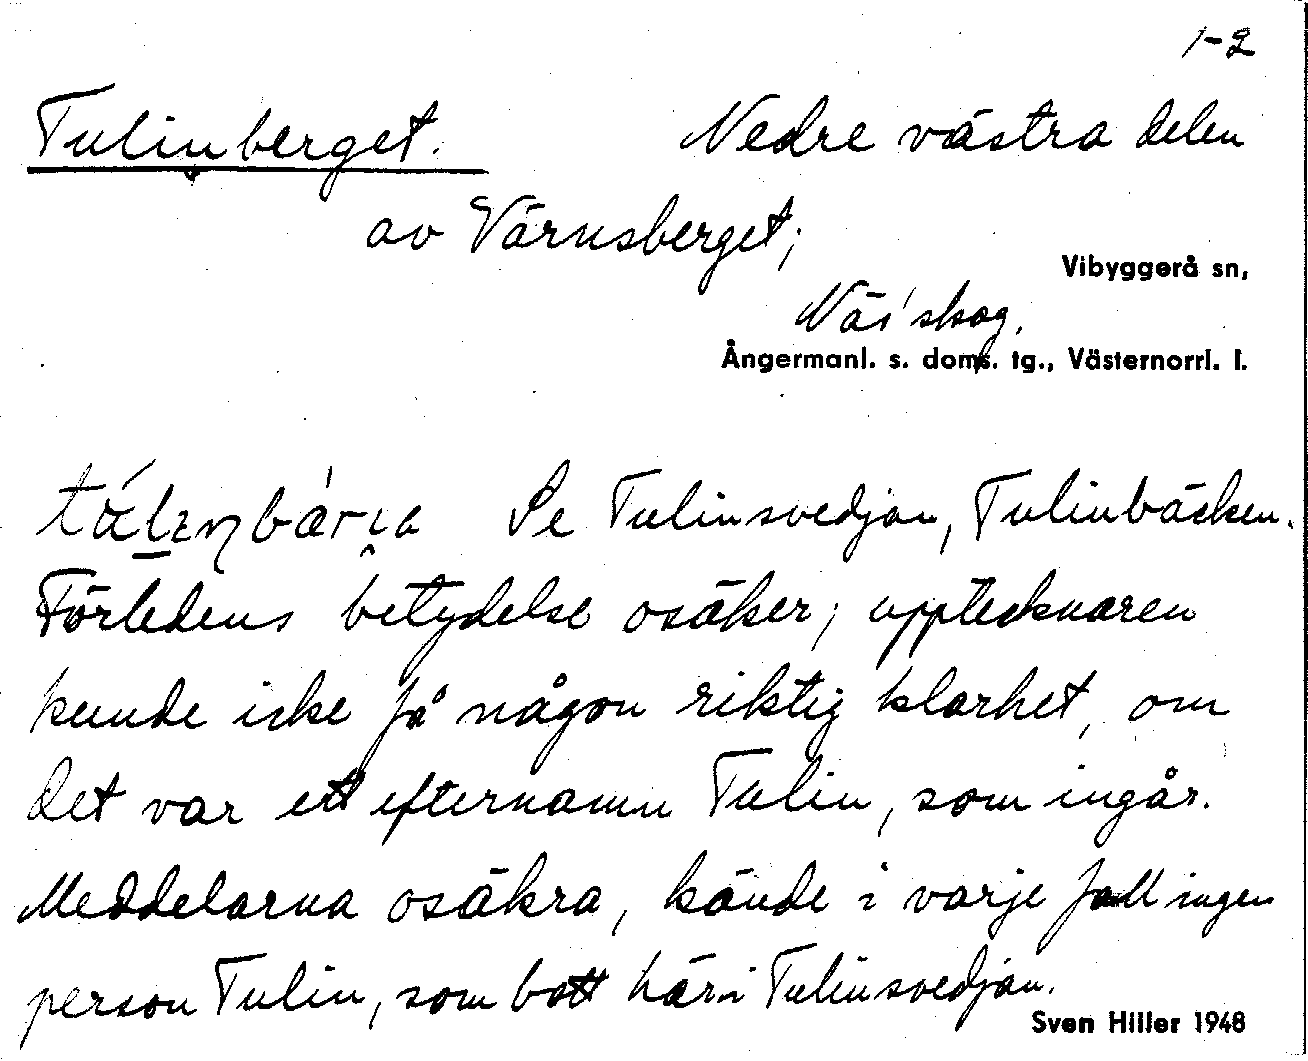 1-2
Tulinberget. Nedre västra delen
av Värnsberget;
Vibyggerå sn,
Näs' skog.
Ångermanl. s. doms. tg., Västernorrl. l.
Se Tulinsvedjan, Tulinbäcken.
Förledens betydelse osäker; upptecknaren
kunde icke få någon riktig klarhet, om
det var ett efternamn Tulin, som ingår.
Meddelarna osäkra, kände i varje fall ingen
person Tulin, som bott här i Tulinsvedjan.
Sven Hiller 1948